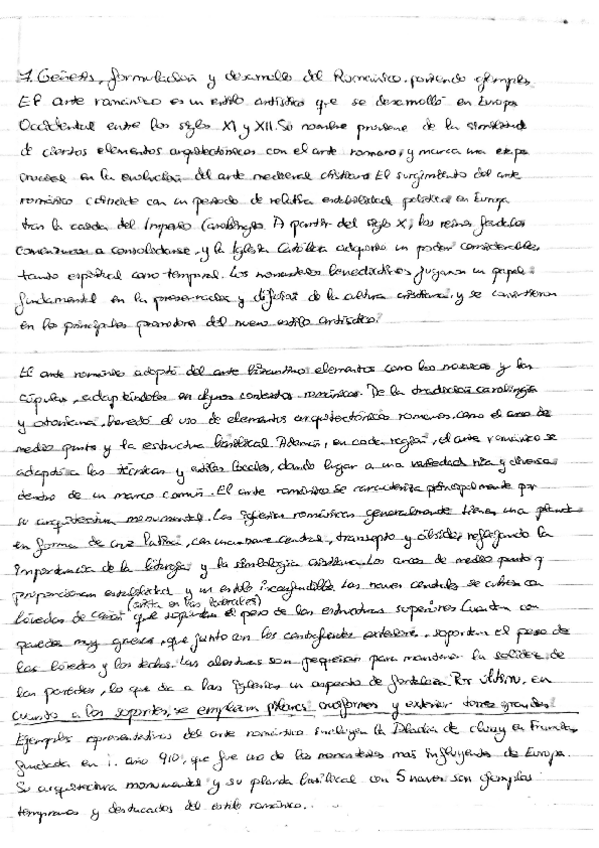 7. Génesis, formulación y desarrollo del Románico, poniendo ejemplos
El arte románico es un estilo artístico que se desarrolló en Europa
Occidental entre los siglos XI y XII. Su nombre proviene de la similitud
de ciertos elementos arquitectónicos con el arte romano, y marca una etapa
crucial en la evolución del arte medieval cristiano. El surgimiento del arte
románico coincide con un periodo de relativa estabilidad política en Europa
tras la caída del Imperio Carolingio. A partir del siglo X, los reinos feudales
comienzan a consolidarse, y la Iglesia Católica adquiere un poder considerable,
tanto espiritual como temporal. Los monasterios benedictinos jugaron un papel
fundamental en la preservación y difusión de la cultura cristiana, y se convirtieron
en los principales promotores del nuevo estilo artístico.
El arte románico adoptó del arte bizantino elementos como los mosaicos y las
cúpulas, adaptándolos en algunos contextos románicos. De la tradición carolingia
y otoniana, heredó el uso de elementos arquitectónicos romanos, como el arco de
medio punto y la estructura basilical. Además, en cada región, el arte románico se
adaptó a las técnicas y estilos locales, dando lugar a una variedad rica y diversa
dentro de un marco común. El arte románico se caracteriza principalmente por
su arquitectura monumental. Las iglesias románicas generalmente tienen una planta
en forma de cruz latina, con una nave central, transepto y ábside, reflejando la
importancia de la liturgia y la simbología cristiana. Los arcos de medio punto
proporcionan estabilidad y un estilo inconfundible. Las naves centrales se cubren con
bóvedas de cañón (arista en las laterales) que soportan el peso de las estructuras superiores. Cuentan con
paredes muy gruesas, que junto con los contrafuertes exteriores, soportan el peso de
las bóvedas y los techos. Las aberturas son pequeñas para mantener la solidez de
las paredes, lo que da a las iglesias un aspecto de fortaleza. Por último, en
cuanto a los soportes, se emplean pilares cruciformes y exterior torres grandes.
Ejemplos representativos del arte románico incluyen la Abadía de Cluny en Francia,
fundada en el año 910, que fue uno de los monasterios más influyentes de Europa.
Su arquitectura monumental y su planta basilical con 5 naves son ejemplos
tempranos y destacados del estilo románico.